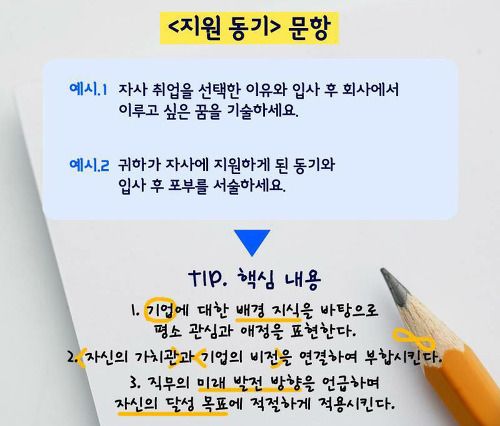 <지원 동기> 문항
예시.1 자사 취업을 선택한 이유와 입사 후 회사에서
이루고 싶은 꿈을 기술하세요.
예시.2 귀하가 자사에 지원하게 된 동기와
입사 후 포부를 서술하세요.
TIP. 핵심 내용
1. 기업에 대한 배경 지식을 바탕으로
평소 관심과 애정을 표현한다.
2. 자신의 가치관과 기업의 비전을 연결하여 부합시킨다.
3. 직무의 미래 발전 방향을 언급하며
자신의 달성 목표에 적절하게 적용시킨다.